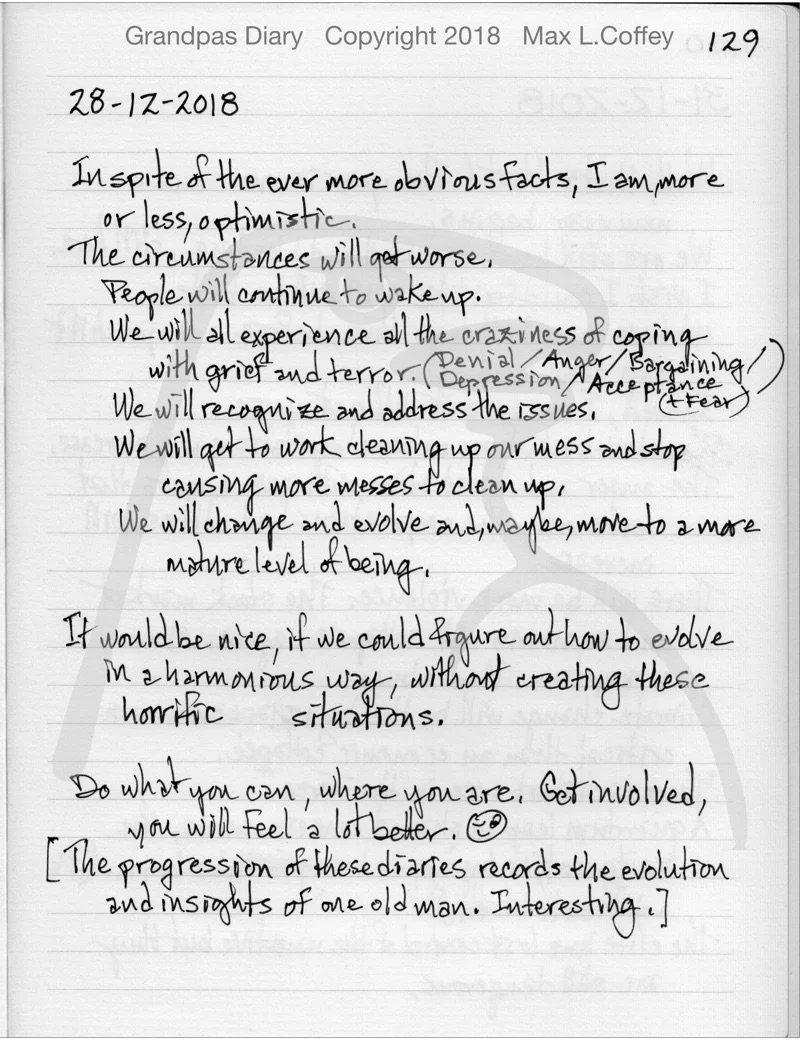 Grandpas Diary Copyright 2018 Max L.Coffey
129
28-12-2018
In spite of the ever more obvious facts, I am, more
or less, optimistic.
The circumstances will get worse.
People will continue to wake up.
We will all experience all the craziness of coping
with grief and terror. (Denial / Anger / Bargaining /
Depression / Acceptance
+ Fear)
We will recognize and address the issues.
We will get to work cleaning up our mess and stop
causing more messes to clean up.
We will change and evolve and, maybe, move to a more
mature level of being.
It would be nice, if we could figure out how to evolve
in a harmonious way, without creating these
horrific situations.
Do what you can, where you are. Get involved,
you will feel a lot better.
[The progression of these diaries records the evolution
and insights of one old man. Interesting.]